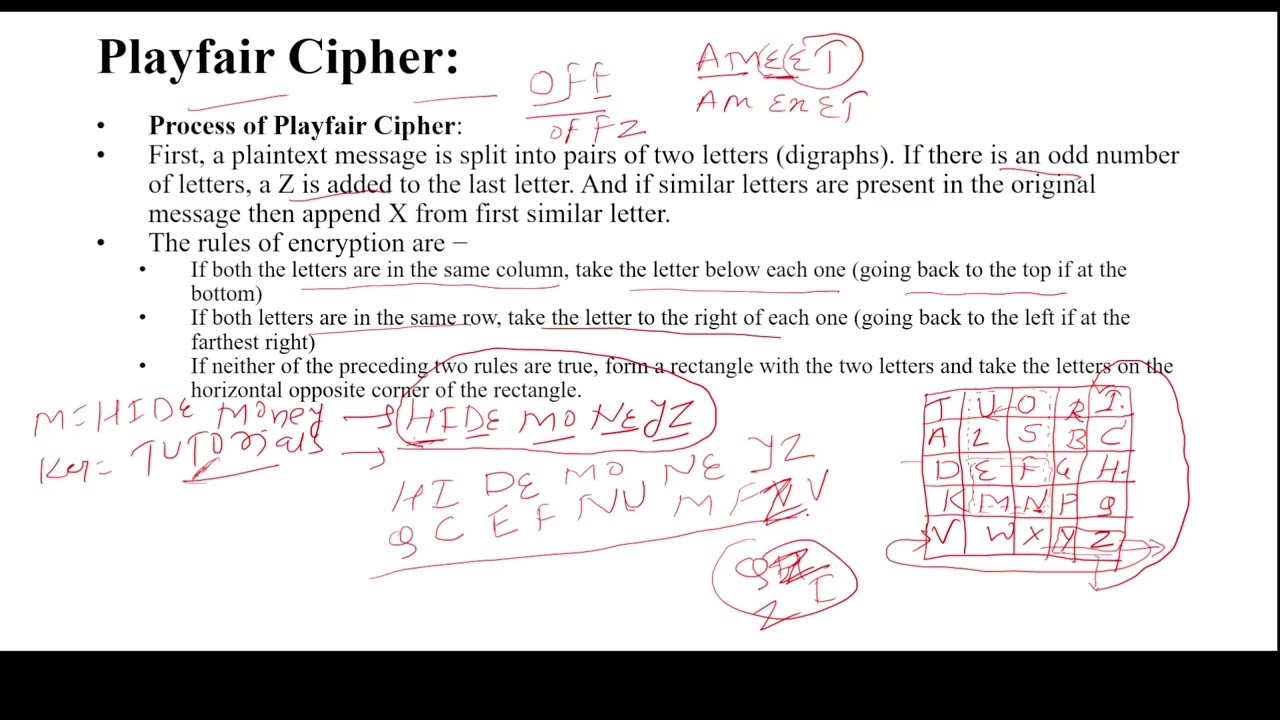 Playfair Cipher:
OFF
AMEET
OF FZ
AM EX ET
• Process of Playfair Cipher:
• First, a plaintext message is split into pairs of two letters (digraphs). If there is an odd number
of letters, a Z is added to the last letter. And if similar letters are present in the original
message then append X from first similar letter.
• The rules of encryption are −
• If both the letters are in the same column, take the letter below each one (going back to the top if at the
bottom)
• If both letters are in the same row, take the letter to the right of each one (going back to the left if at the
farthest right)
• If neither of the preceding two rules are true, form a rectangle with the two letters and take the letters on the
horizontal opposite corner of the rectangle.
M=HIDE Money → HIDE MO NEYZ
Key= TUTORials →
HI DE MO NE YZ
Q C E F N U M F Z V
Q
I
Z
T U O R I
A L S B C
D E F G H
K M N P Q
V W X Y Z